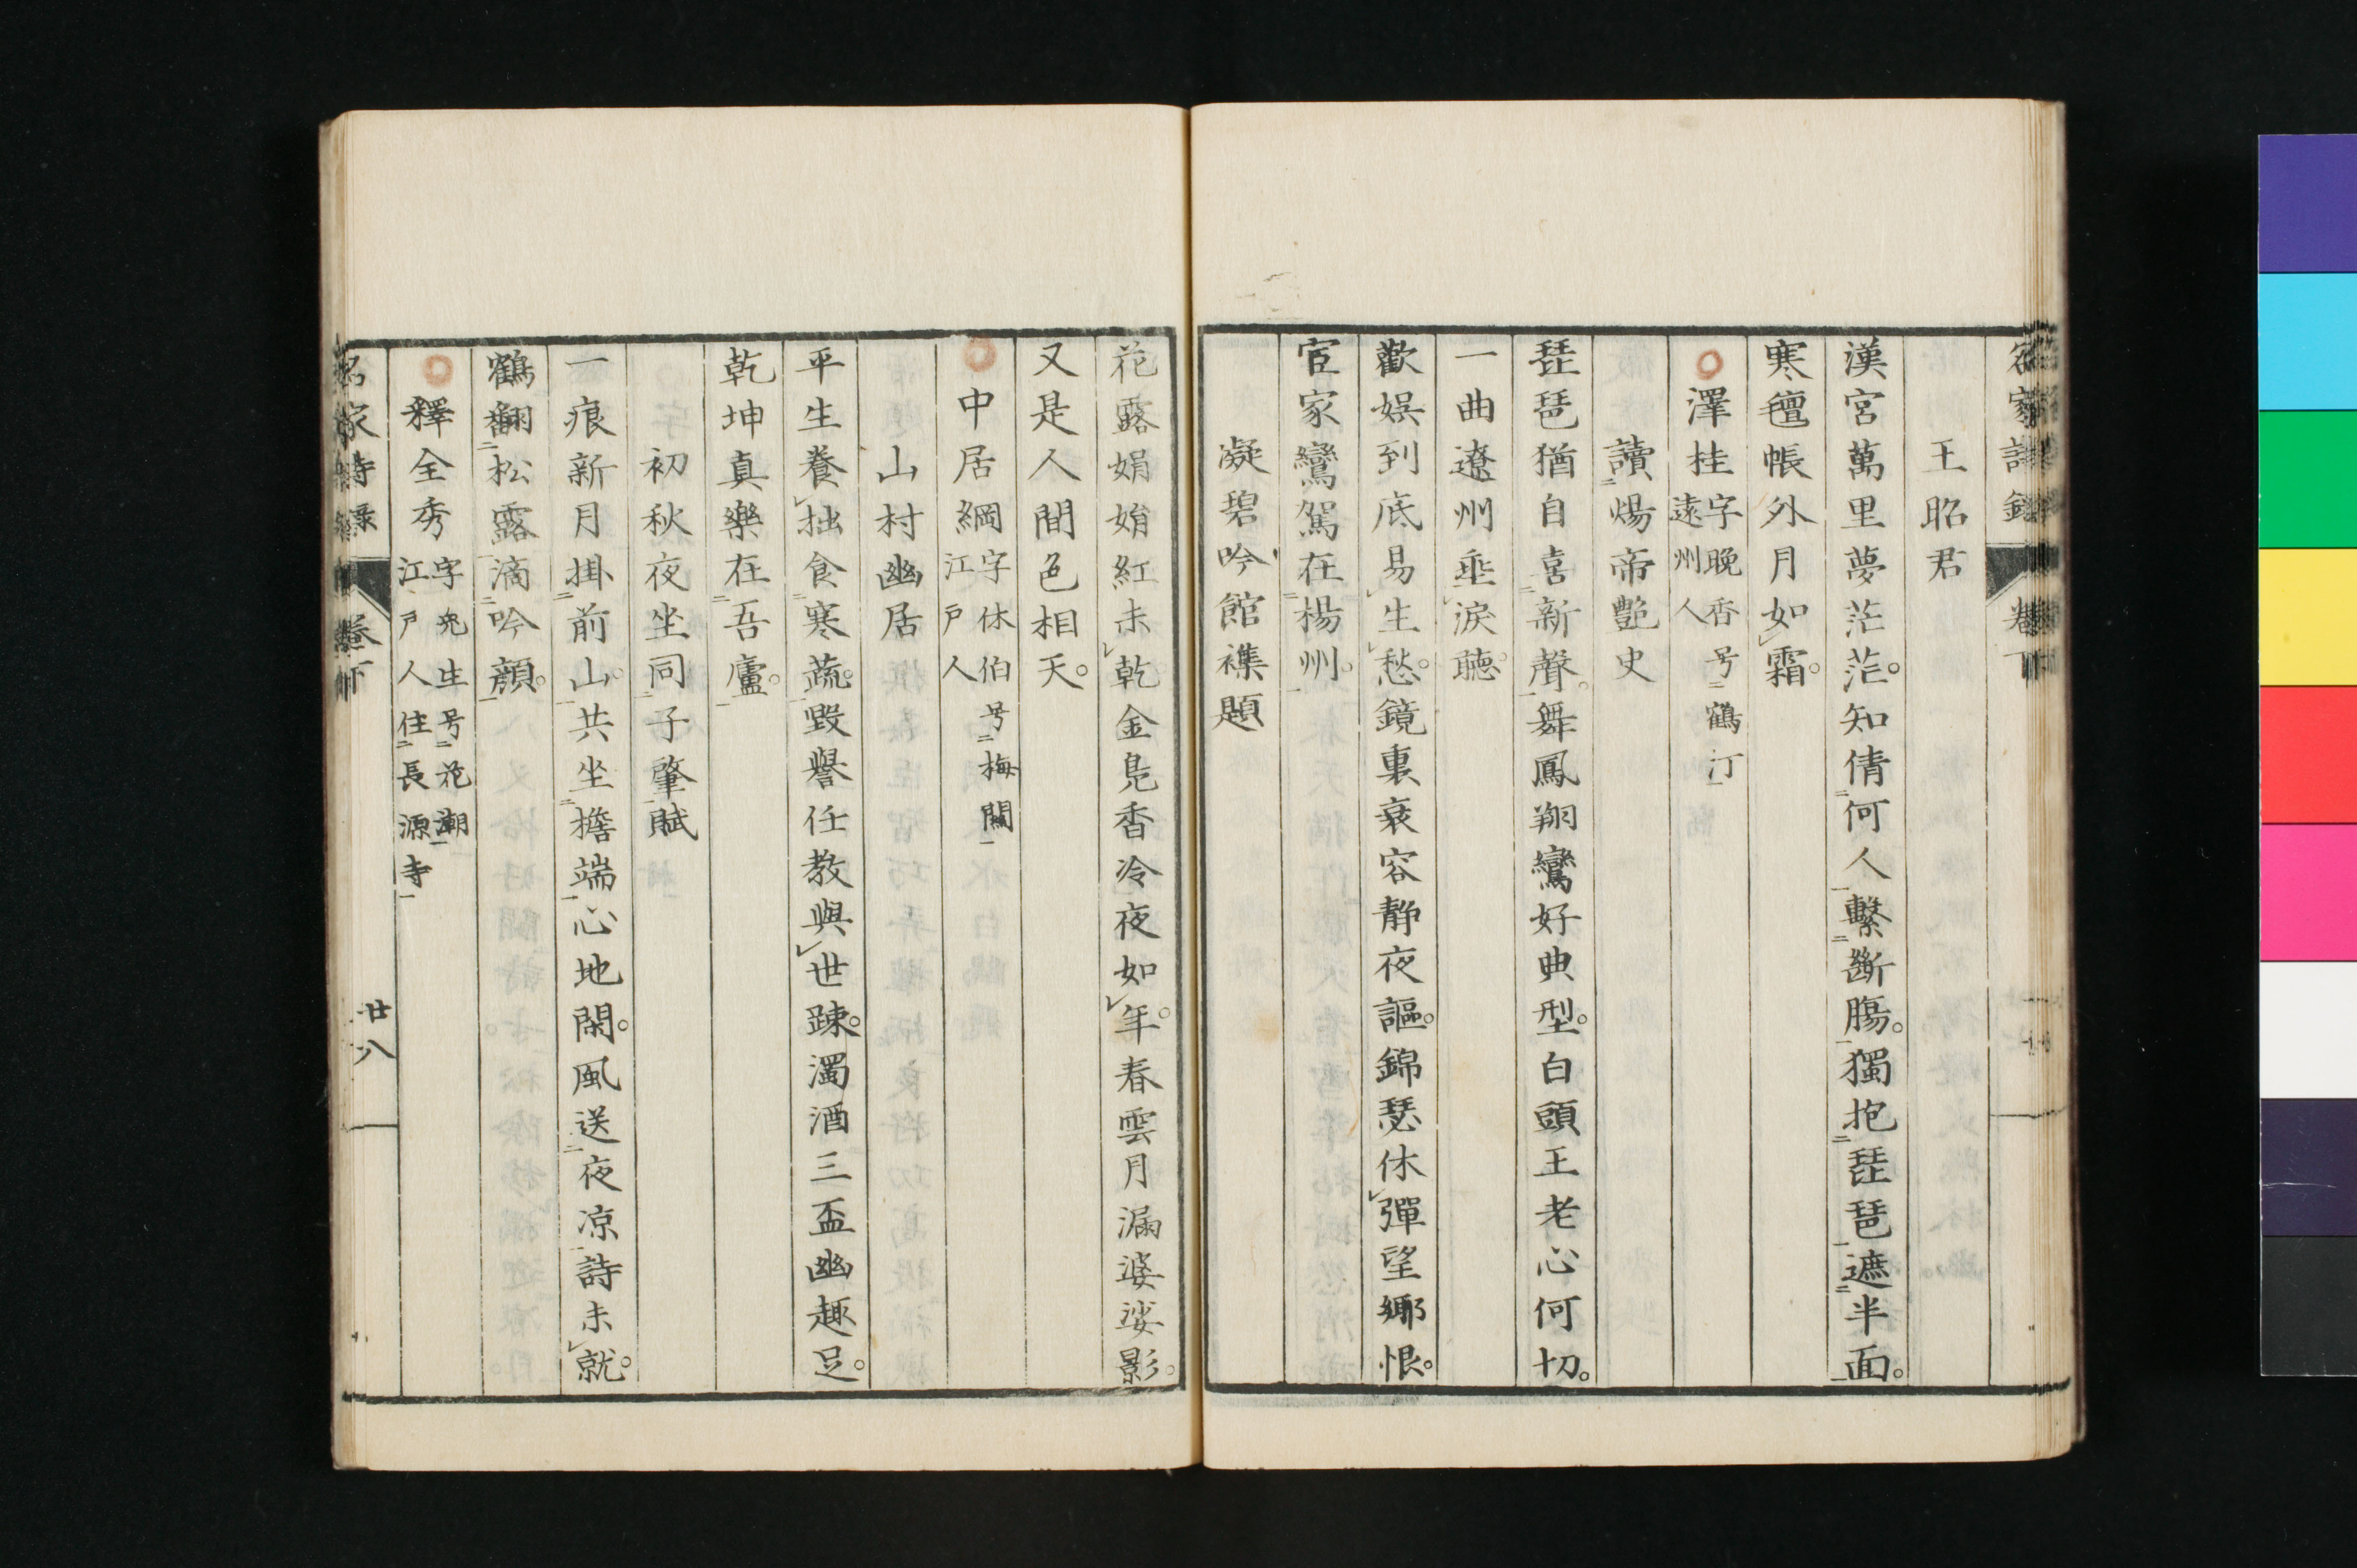 名家詩録 卷下
王昭君
漢宮萬里夢茫茫。知倩何人繫斷膓。獨抱琵琶遮半面。
寒氊帳外月如霜。
澤桂 字晩香号鶴汀
遠州人
讀煬帝艶史
琵琶猶自喜新聲。舞鳳翔鸞好典型。白頭王老心何切。
一曲遼州垂涙聽。
歡娯到底易生愁。鏡裏衰容静夜謳。錦瑟休彈望郷恨。
宦家鸞駕在楊州。
凝碧吟館襍題
花露娟娟紅未乾。金鳬香冷夜如年。春雲月漏婆娑影。
又是人間色相天。
中居綱 字休伯号梅關
江戸人
山村幽居
平生養拙食寒蔬。毀譽任教與世踈。濁酒三盃幽趣足。
乾坤真樂在吾廬。
初秋夜坐同子肇賦
一痕新月掛前山。共坐擔端心地閑。風送夜凉詩未就。
鶴翻松露滴吟顔。
釋全秀 字 生号花潮
江戸人住長源寺
名家詩録 卷下 廿八